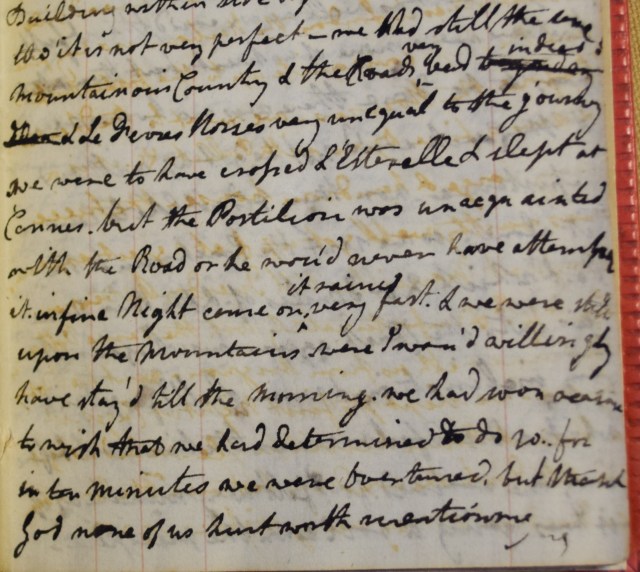 Building
tho' it is not very perfect - we had still the same
mountainious Country & the Roads very bad indeed
& Le Fevres Horses very unequal to the journey
we were to have crossed L'Esterelle & slept at
Cannes. but the Postilion was unacquainted
with the Road or he wou'd never have attempted
it. infine Night came on, it rained very fast. & we were still
upon the Mountains were I wou'd willingly
have stay'd till the Morning. we had soon occasion
to wish that we had determined to do so.. for
in ten minutes we were overturned. but thank
God none of us hurt worth mentioning